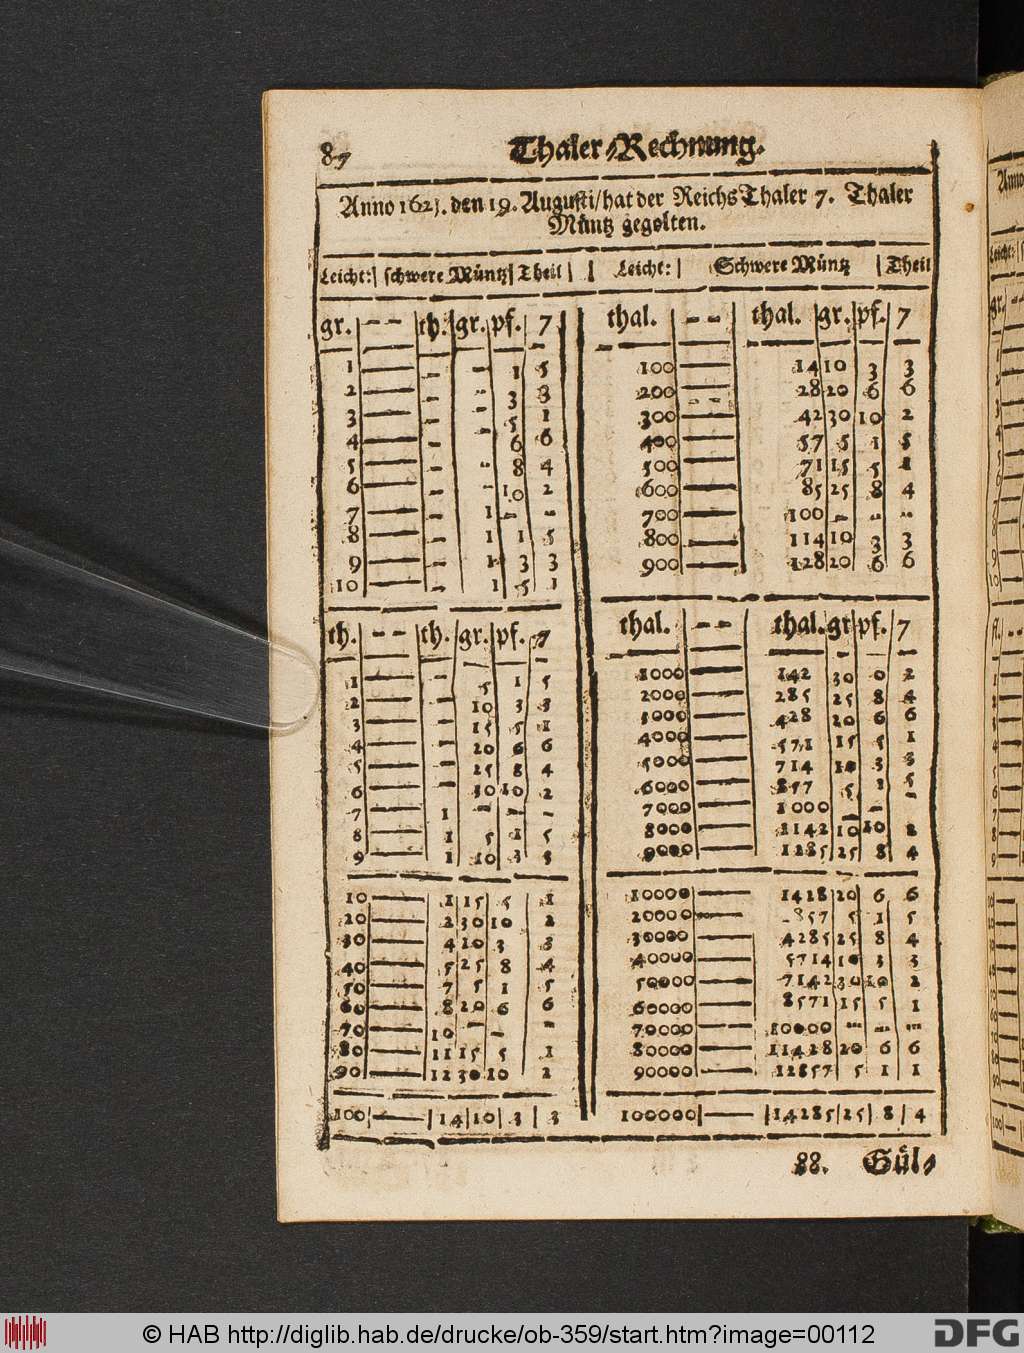 87
Thaler-Rechnung.
Anno 1623. den 19. Augusti/hat der Reichs Thaler 7. Thaler
Müntz gegolten.
Leicht:| schwere Müntz| Theil |
gr. -- th. gr. pf. 7
1 — - - 1 5
2 — - - 3 3
3 — - - 5 1
4 — - - 6 6
5 — - - 8 4
6 — - - 10 2
7 — - 1 - -
8 — - 1 1 5
9 — - 1 3 3
10 — - 1 5 1
th. -- th. gr. pf. 7
1 — - 5 1 5
2 — - 10 3 3
3 — - 15 5 1
4 — - 20 6 6
5 — - 25 8 4
6 — - 30 10 2
7 — 1 - - -
8 — 1 5 1 5
9 — 1 10 3 3
10 — 1 15 5 1
20 — 2 30 10 2
30 — 4 10 3 3
40 — 5 25 8 4
50 — 7 5 1 5
60 — 8 20 6 6
70 — 10 - - -
80 — 11 15 5 1
90 — 12 30 10 2
100 — 14 10 3 3
Leicht: | Schwere Müntz | Theil
thal. -- thal. gr. pf. 7
100 — 14 10 3 3
200 — 28 20 6 6
300 — 42 30 10 2
400 — 57 5 1 5
500 — 71 15 5 1
600 — 85 25 8 4
700 — 100 - - -
800 — 114 10 3 3
900 — 128 20 6 6
thal. -- thal. gr pf. 7
1000 — 142 30 0 2
2000 — 285 25 8 4
3000 — 428 20 6 6
4000 — 571 15 5 1
5000 — 714 10 3 3
6000 — 857 5 1 5
7000 — 1000 - - -
8000 — 1142 10 10 2
9000 — 1285 25 8 4
10000 — 1428 20 6 6
20000 — 857 5 1 5
30000 — 4285 25 8 4
40000 — 5714 10 3 3
50000 — 7142 30 10 2
60000 — 8571 15 5 1
70000 — 10000 - - -
80000 — 11428 20 6 6
90000 — 12857 5 1 1
100000 — 14285 25 8 4
88. Gül-
Anno
Leicht:
gr.
fl.
© HAB http://diglib.hab.de/drucke/ob-359/start.htm?image=00112
DFG